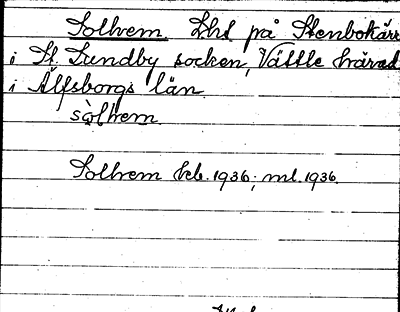 Solhem Lhs på Stenbokärr
i St. Lundby socken, Vättle härad
i Älfsborgs län
sòlhem
Solhem kb. 1936; ml. 1936.